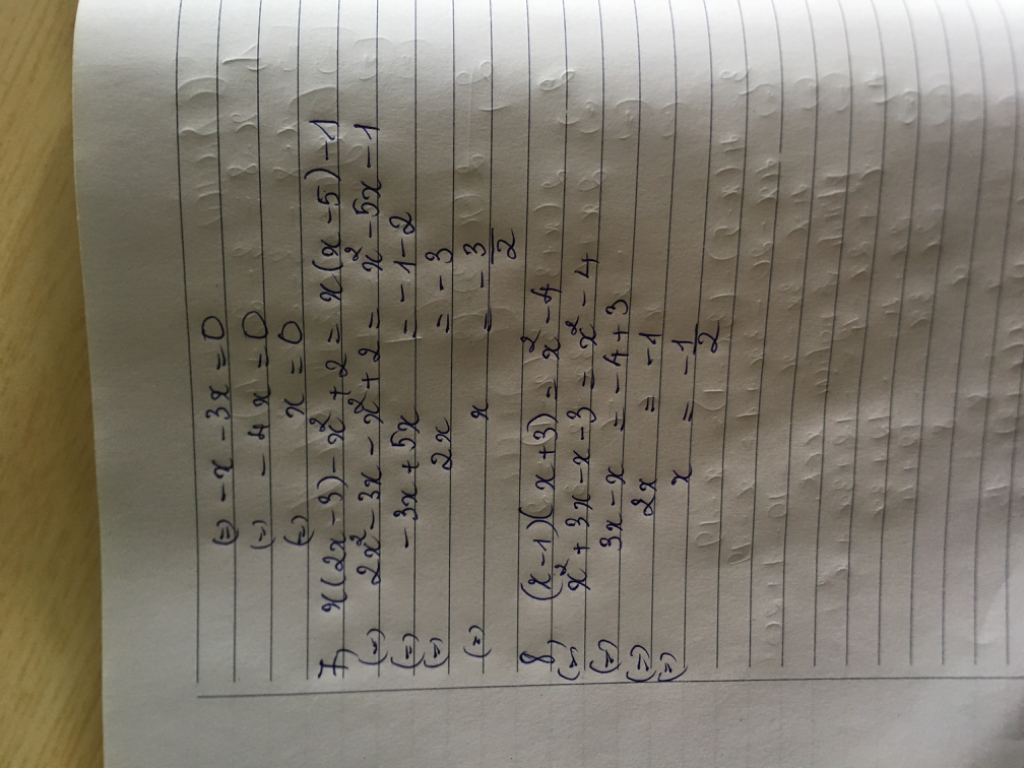 (=) -x - 3x = 0
(=) - 4x = 0
(=) x = 0
7) x(2x - 3) - x² + 2 = x(x - 5) - 1
(=) 2x² - 3x - x² + 2 = x² - 5x - 1
(=) - 3x + 5x = - 1 - 2
(=) 2x = - 3
(=) x = - 3/2
8) (x - 1)(x + 3) = x² - 4
(=) x² + 3x - x - 3 = x² - 4
(=) 3x - x = - 4 + 3
(=) 2x = - 1
(=) x = - 1/2